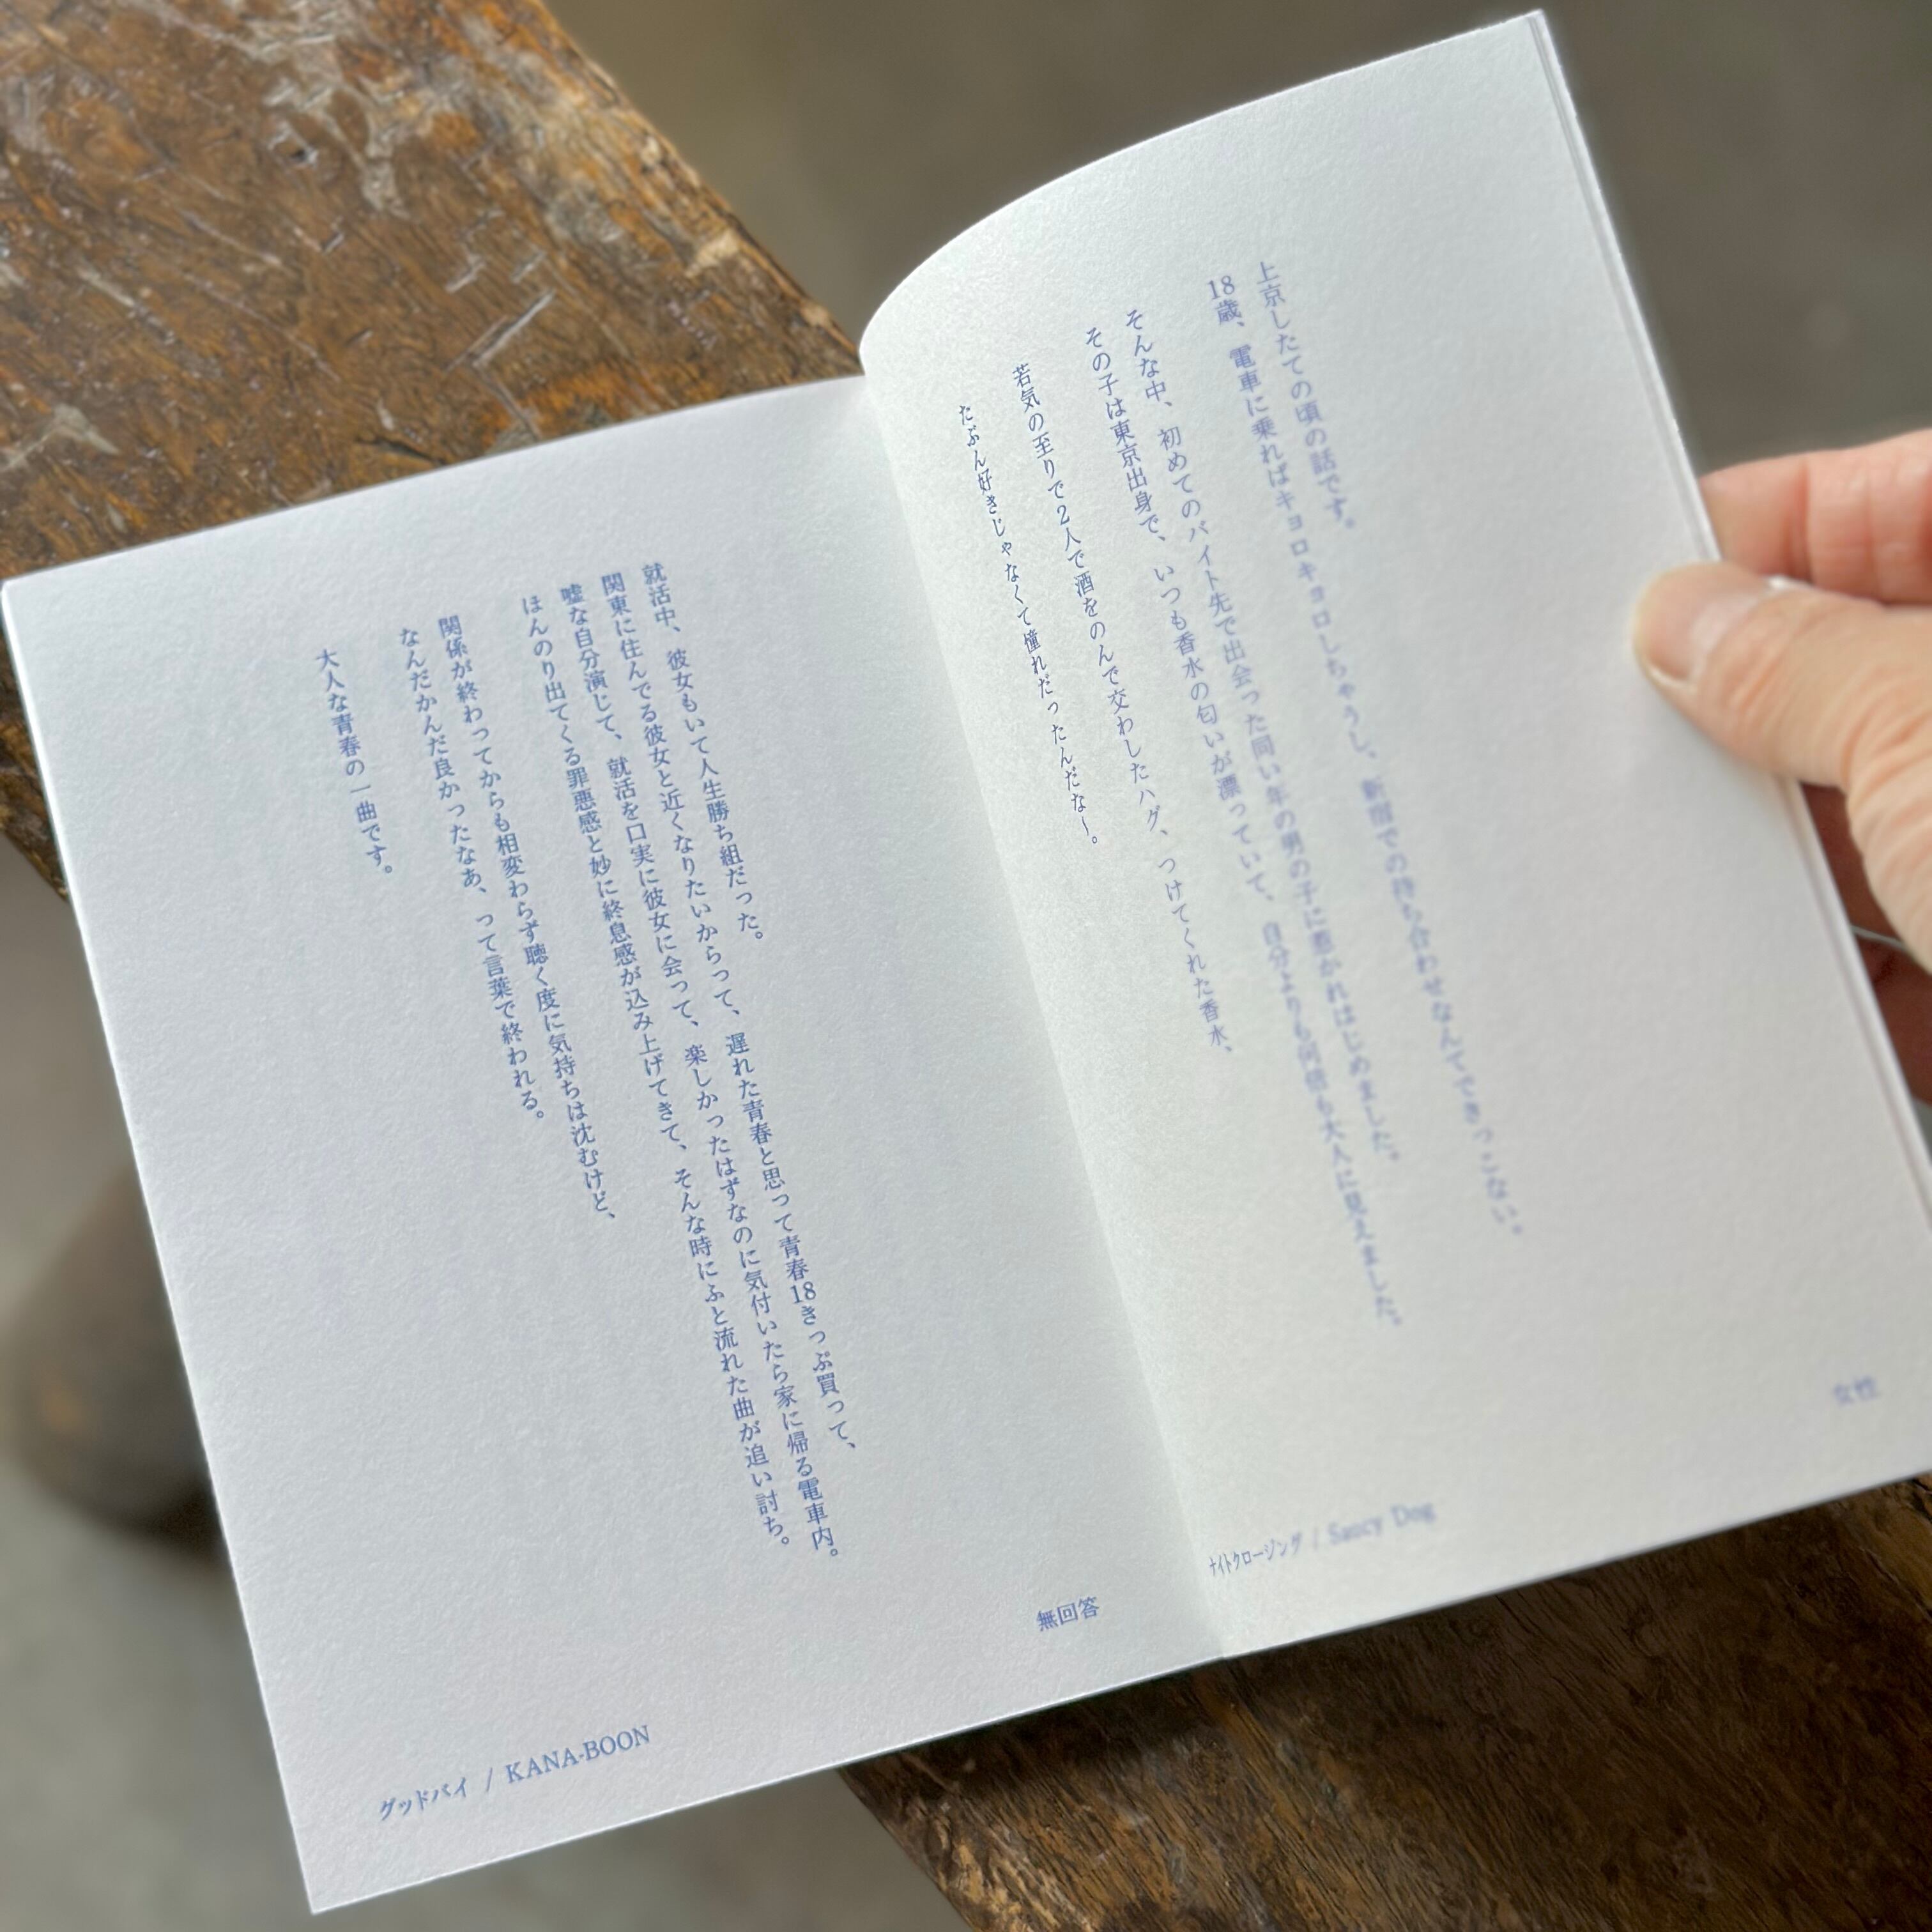 上京したての頃の話です。
18歳、電車に乗ればキョロキョロしちゃうし、新宿での待ち合わせなんてできっこない。
そんな中、初めてのバイト先で出会った同い年の男の子に惹かれはじめました。
その子は東京出身で、いつも香水の匂いが漂っていて、自分よりも何倍も大人に見えました。
若気の至りで2人で酒をのんで交わしたハグ、つけてくれた香水、
たぶん好きじゃなくて憧れだったんだな〜。
女性
ナイトクロージング / Saucy Dog
就活中、彼女もいて人生勝ち組だった。
関東に住んでる彼女と近くなりたいからって、遅れた青春と思って青春18きっぷ買って、
嘘な自分演じて、就活を口実に彼女に会って、楽しかったはずなのに気付いたら家に帰る電車内。
ほんのり出てくる罪悪感と妙に終息感が込み上げてきて、そんな時にふと流れた曲が追い討ち。
関係が終わってからも相変わらず聴く度に気持ちは沈むけど、
なんだかんだ良かったなあ、って言葉で終われる。
大人な青春の一曲です。
無回答
グッドバイ / KANA-BOON